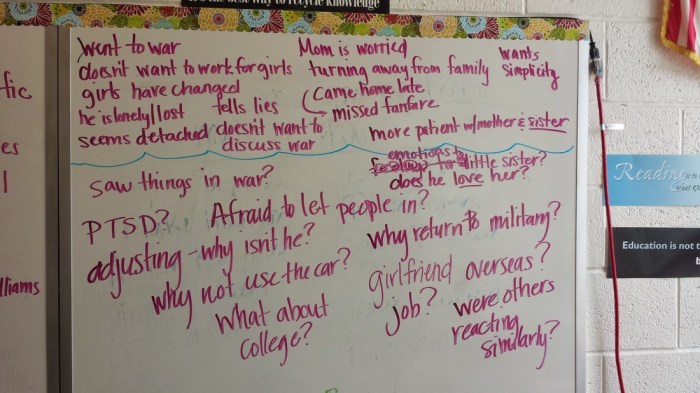 It's the best way to recycle knowledge
Went to war
doesn't want to work for girls
girls have changed
he is lonely/lost
tells lies
seems detached
doesn't want to
discuss war
Mom is worried
turning away from family
came home late
missed fanfare
wants
simplicity
more patient w/mother & sister
emotions
for little sister?
does he love her?
saw things in war?
PTSD?
Afraid to let people in?
adjusting - why isn't he?
why not use the car?
What about
college?
why return to military?
girlfriend overseas?
job?
were others
reacting
similarly?
fic
es
l
lliams
Reading
Education is not t
b